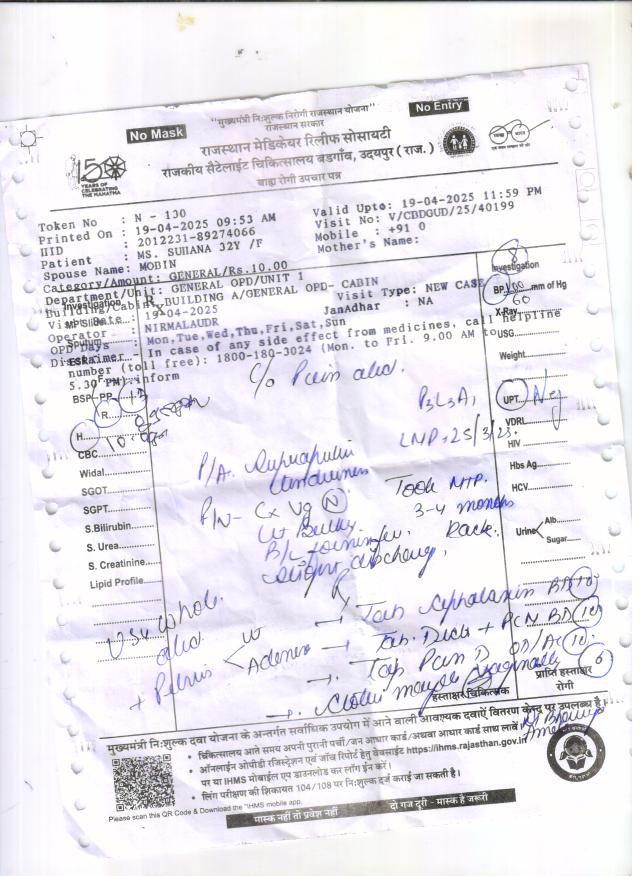 "मुख्यमंत्री निःशुल्क निरोगी राजस्थान योजना"
राजस्थान सरकार
No Mask
No Entry
राजस्थान मेडिकेयर रिलीफ सोसायटी
राजकीय सैटेलाईट चिकित्सालय बडगाँव, उदयपुर ( राज. )
बाह्य रोगी उपचार पत्र
150
YEARS OF
CELEBRATING
THE MAHATMA
Token No : N - 130
Printed On : 19-04-2025 09:53 AM
HID : 2012231-89274066
Patient : MS. SUHANA 32Y /F
Spouse Name: MOBIN
Valid Upto: 19-04-2025 11:59 PM
Visit No: V/CBDGUD/25/40199
Mobile : +91 0
Mother's Name:
Category/Amount: GENERAL/Rs.10.00
Department/Unit: GENERAL OPD/UNIT 1
Building/Cabin: BUILDING A/GENERAL OPD- CABIN
Visit Date : 19-04-2025
Visit Type: NEW CASE
Operator : NIRMALAUDR
JanAdhar : NA
OPD Days : Mon,Tue,Wed,Thu,Fri,Sat,Sun
Disclaimer - In case of any side effect from medicines, call helpline
number (toll free): 1800-180-3024 (Mon. to Fri. 9.00 AM to
5.30 PM) inform
Investigation
BP 100 mm of Hg
60
X-Ray
USG
Weight
UPT Neg
VDRL
HIV
Hbs Ag
HCV
Urine Alb.
Sugar
Investigation
MP Slide
Sputum
ESR
BSF PP
R
H
CBC
Widal
SGOT
SGPT
S.Bilirubin
S. Urea
S. Creatinine
Lipid Profile
C/o Pain abd.
P3L3A1
LMP - 25/3/25
P/A. Suprapubic
tenderness
P/V - Cx Vg N
Ut Bulky
B/L fornix free
Took MTP.
3-4 months
Back.
discharge
Rx
USG whole
abd.
+ Pelvis
Ut
Adenexa
→ Tab Cephalexin BD (10)
→ Tab. Diclo + PCM BD (10)
→ Tab Pan D OD/AC (10)
→ Clotri vaginally 6
हस्ताक्षर चिकित्सक
प्राप्ति हस्ताक्षर
रोगी
मुख्यमंत्री निःशुल्क दवा योजना के अन्तर्गत सर्वाधिक उपयोग में आने वाली आवश्यक दवाऐं वितरण केन्द्र पर उपलब्ध है।
• चिकित्सालय आते समय अपनी पुरानी पर्ची/जन आधार कार्ड/अथवा आधार कार्ड साथ लावें
• ऑनलाईन ओपीडी रजिस्ट्रेशन एवं जाँच रिपोर्ट हेतु वेबसाईट https://ihms.rajasthan.gov.in
पर या IHMS मोबाईल एप डाउनलोड कर लॉग ईन करें।
• लिंग परीक्षण की शिकायत 104/108 पर निःशुल्क दर्ज कराई जा सकती है।
Please scan this QR Code & Download the "IHMS mobile app.
मास्क नहीं तो प्रवेश नहीं
दो गज दूरी - मास्क है जरूरी